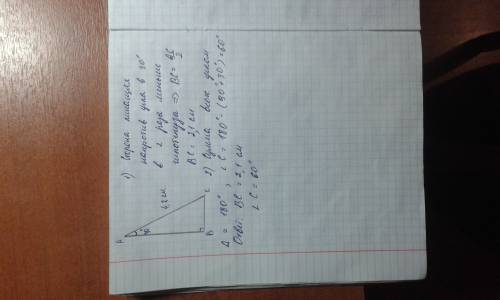 A
30°
4,2 см
B
C
1) Сторона лежащая
напротив угла в 30°
в 2 раза меньше
гипотенузы => BC = AC/2
BC = 2,1 см
2) Сумма всех углов
Δ = 180°, ∠C = 180° - (90°+30°) = 60°
Ответ: BC = 2,1 см
∠C = 60°